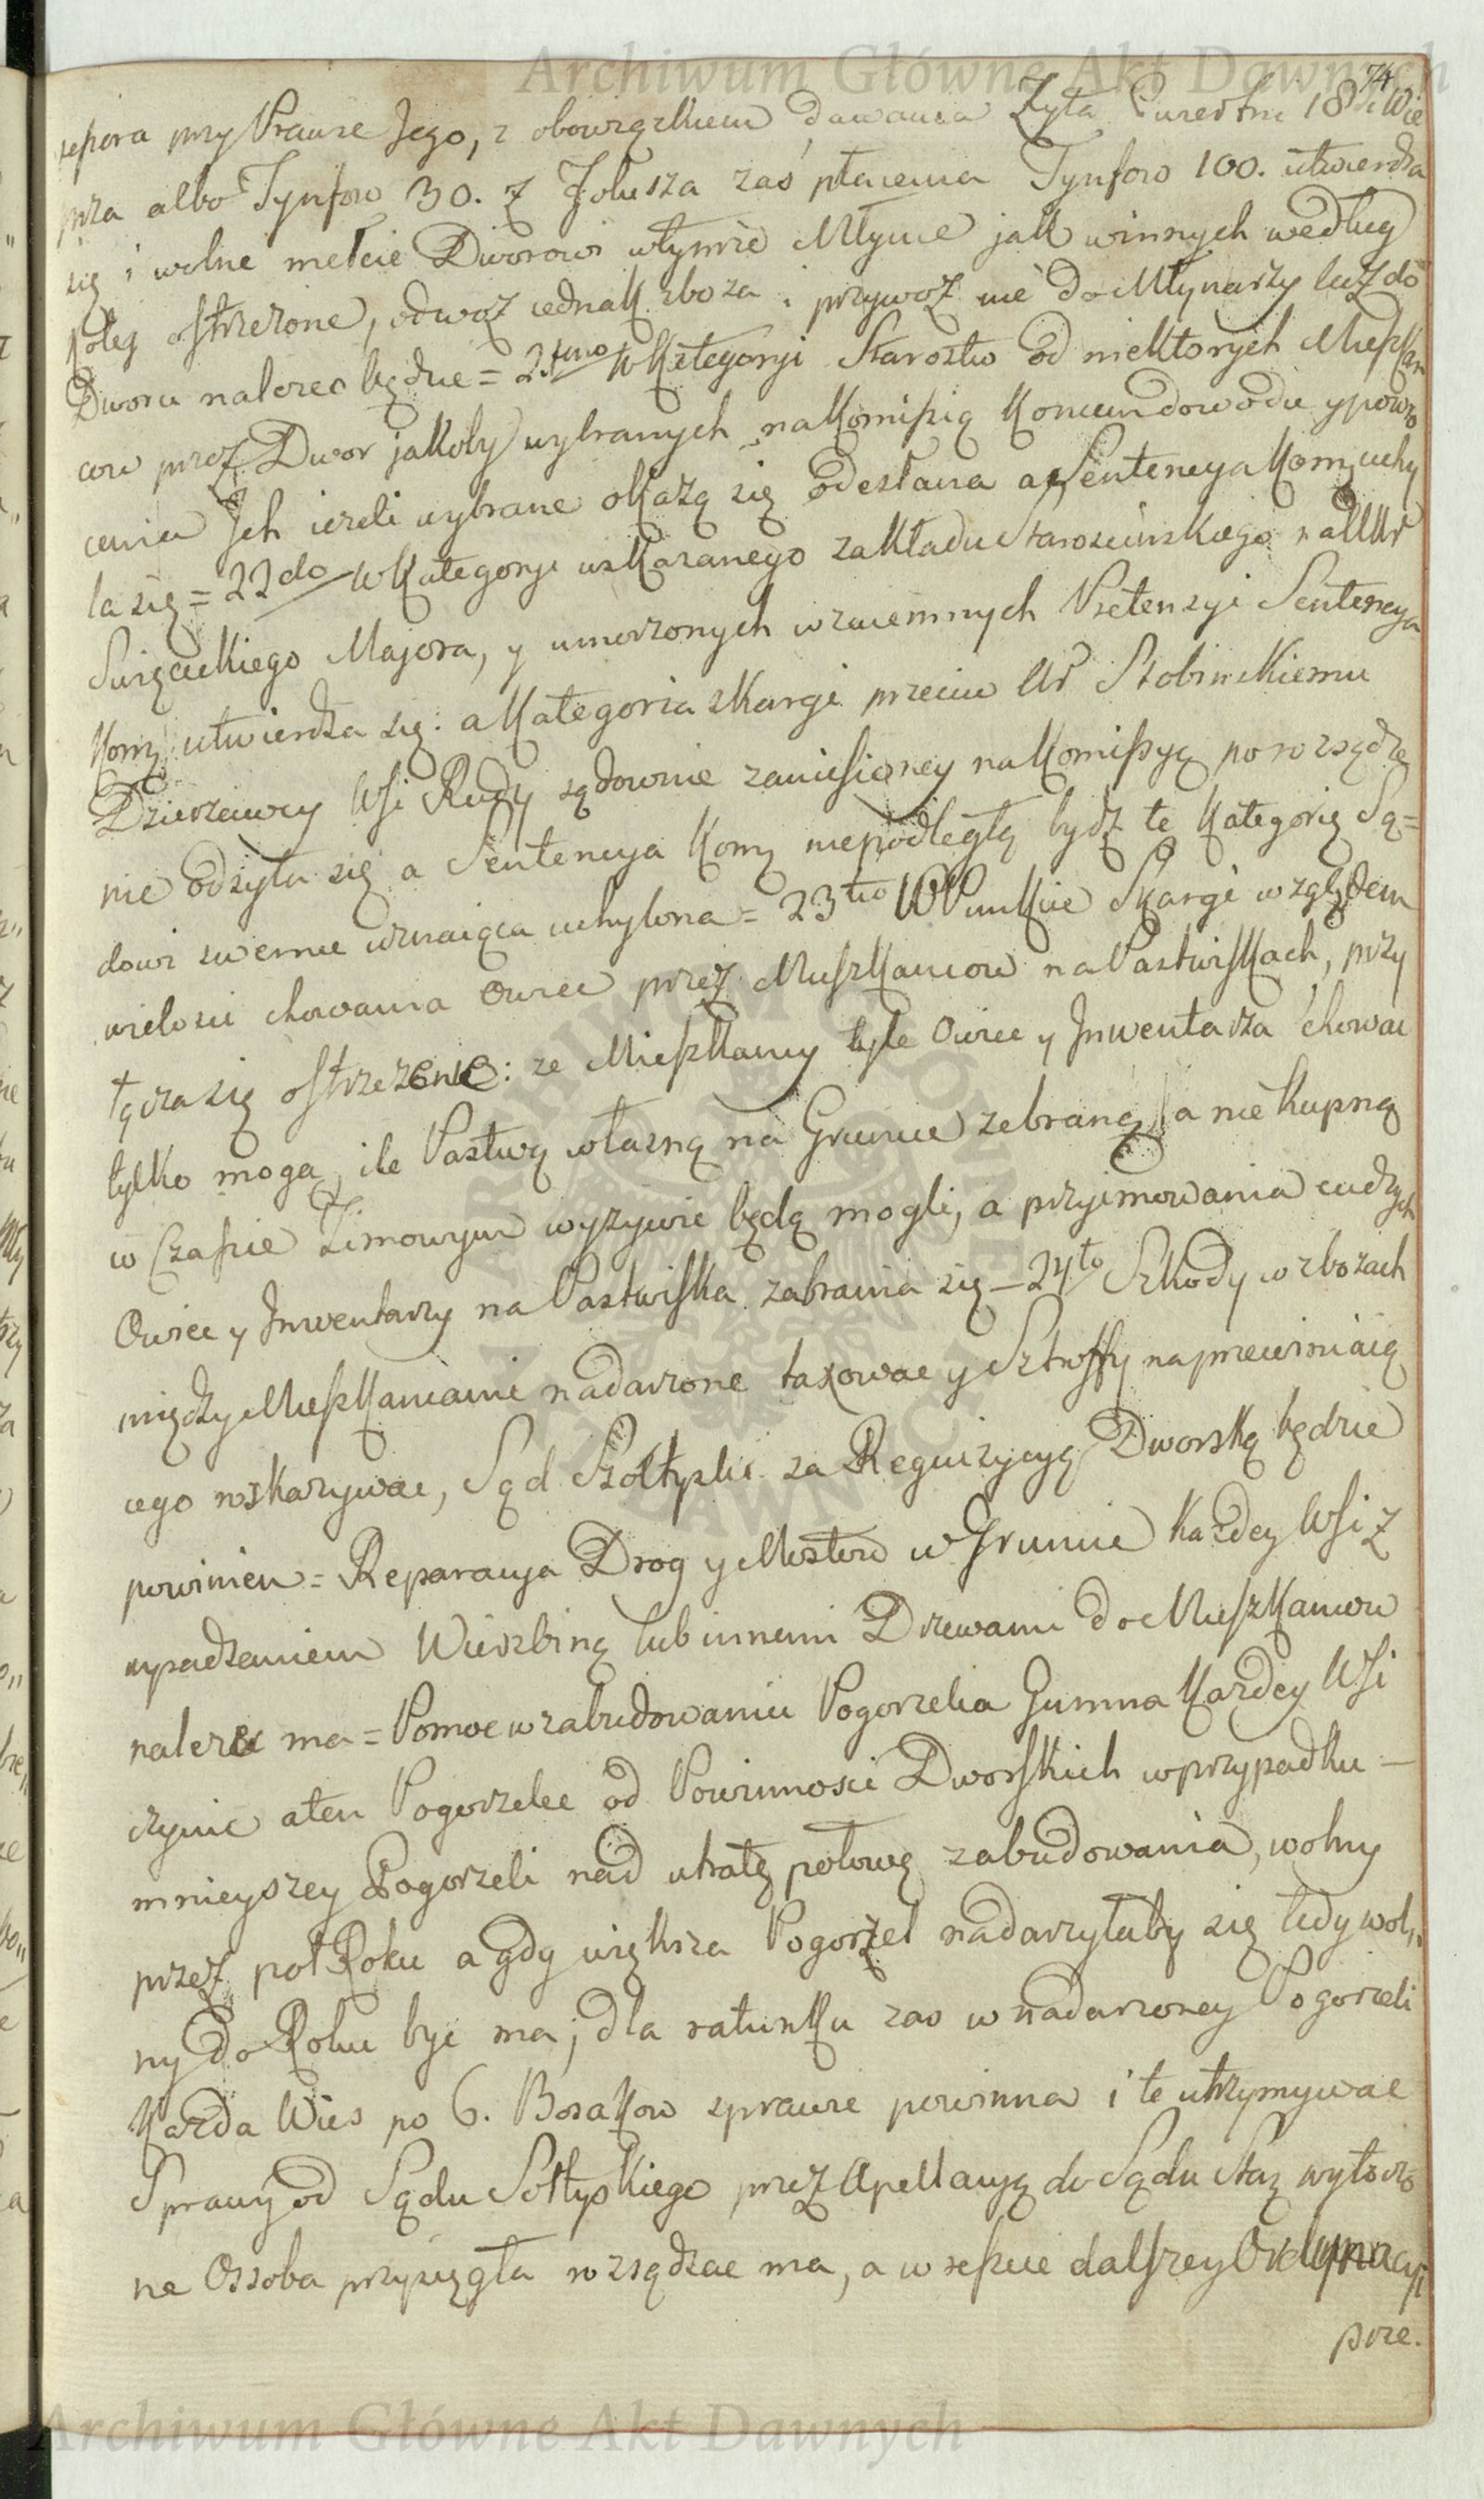 Archiwum Główne Akt Dawnych
74
sepora przy Prawie Jego, z obowiązkiem dawania Zyta Cwiertni 18 i Wie
prza albo Tynfow 30. z Folusza zaś płacenia Tynfow 100. utwierdza
się i wolne mełcie Dworowi w tymże Młynie jak w innych według
kolej ostrzeżone, odwoz iednak zboza i przywoz nie do Młynarzy lecz do
Dworu nalezec będzie = 21mo W Kategoryi Starostw od niektorych Mieszkan
cow przez Dwor jakoby wybranych na Komissią Koncem dowodu y powro
cenia Jch iezeli wybrane okażą się odesłana a Sentencya Kom: uchy
la się = 22do W Kategoryi wskazanego zakładu Starościnskiego na Ur
Swięcickiego Majora, y umorzonych wzaiemnych Pretensyi Sentencya
Kom: utwierdza się: a Kategoria skargi przeciw Ur Stobinskiemu
Dzierzawcy Wsi Rudy sądownie zaniesioney na Komissyą po rozsądze
nie odsyła się a Sentencya Kom: niepodległą bydz te Kategorię Są=
dowi swemu uznaiąca uchylona = 23tio W Punkcie Skargi względem
wielosci chowania Owiec przez Mieszkancow na Pastwiskach, przy
łącza się ostrzezenie: ze Mieszkancy tyle Owiec y Jnwentarza chowac
tylko mogą, ile Pastwą własną na Gruncie zebraną, a nie kupną
w Czasie Zimowym wyzywic będą mogli, a przyimowania cudzych
Owiec y Jnwentarzy na Pastwiska zabrania się _ 24to Szkody w zbozach
między Mieszkancami nadarzone taxowac y Sztroffy na przewiniaią
cego wskazywac, Sąd Szołtyski za Requizycyą Dworską będzie
powinien = Reparacya Drog y Mostow w Gruncie kazdey Wsi z
wysadzeniem Wierzbiną lub innemi Drzewami do Mieszkancow
nalezec ma = Pomoc w zabudowaniu Pogorzelca Gumna kazdey Wsi
czynic a ten Pogorzelec od Powinnosci Dworskich w przypadku _
mnieyszey Pogorzeli nad utratę połowę zabudowania, wolny
przez poł Roku a gdy większa Pogorzel nadarzyłaby się tedy wol,,
ny do Roku byc ma; dla ratunku zas w nadarzoney Pogorzeli
Kazda Wies po 6. Bosakow sprawic powinna i te utrzymywac
Sprawy od Sądu Sołtyskiego przez Apellacyą do Sądu Star: wytoczo
ne Ossoba przysięgła rozsądzac ma, a w reszcie dalszey Ordynacyi
prze.
Archiwum Główne Akt Dawnych